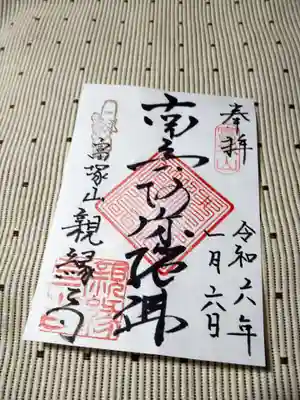 奉拝
令和六年
一月六日
南無阿弥陀佛
富塚山親縁寺